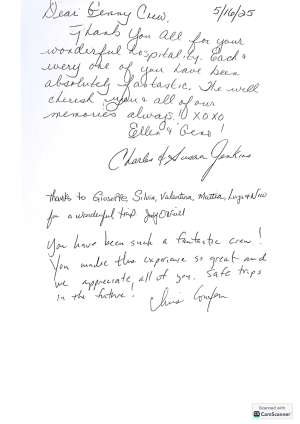 Dear G'enny Crew, 5/16/25
Thank You all for your
wonderful hospitality. Each &
every one of you have been
absolutely fantastic. The will
cherish you & all of our
memories always!! XOXO
Ellen & Gene!
Charles & Susan Jenkins
Thanks to Giuseppe, Silvia, Valentina, Mattia, Luigi & Nico
for a wonderful trip Judy O'Neill
You have been such a fantastic crew!
You made this experience so great and
we appreciate all of you. Safe trips
in the future!
Scanned with
CamScanner